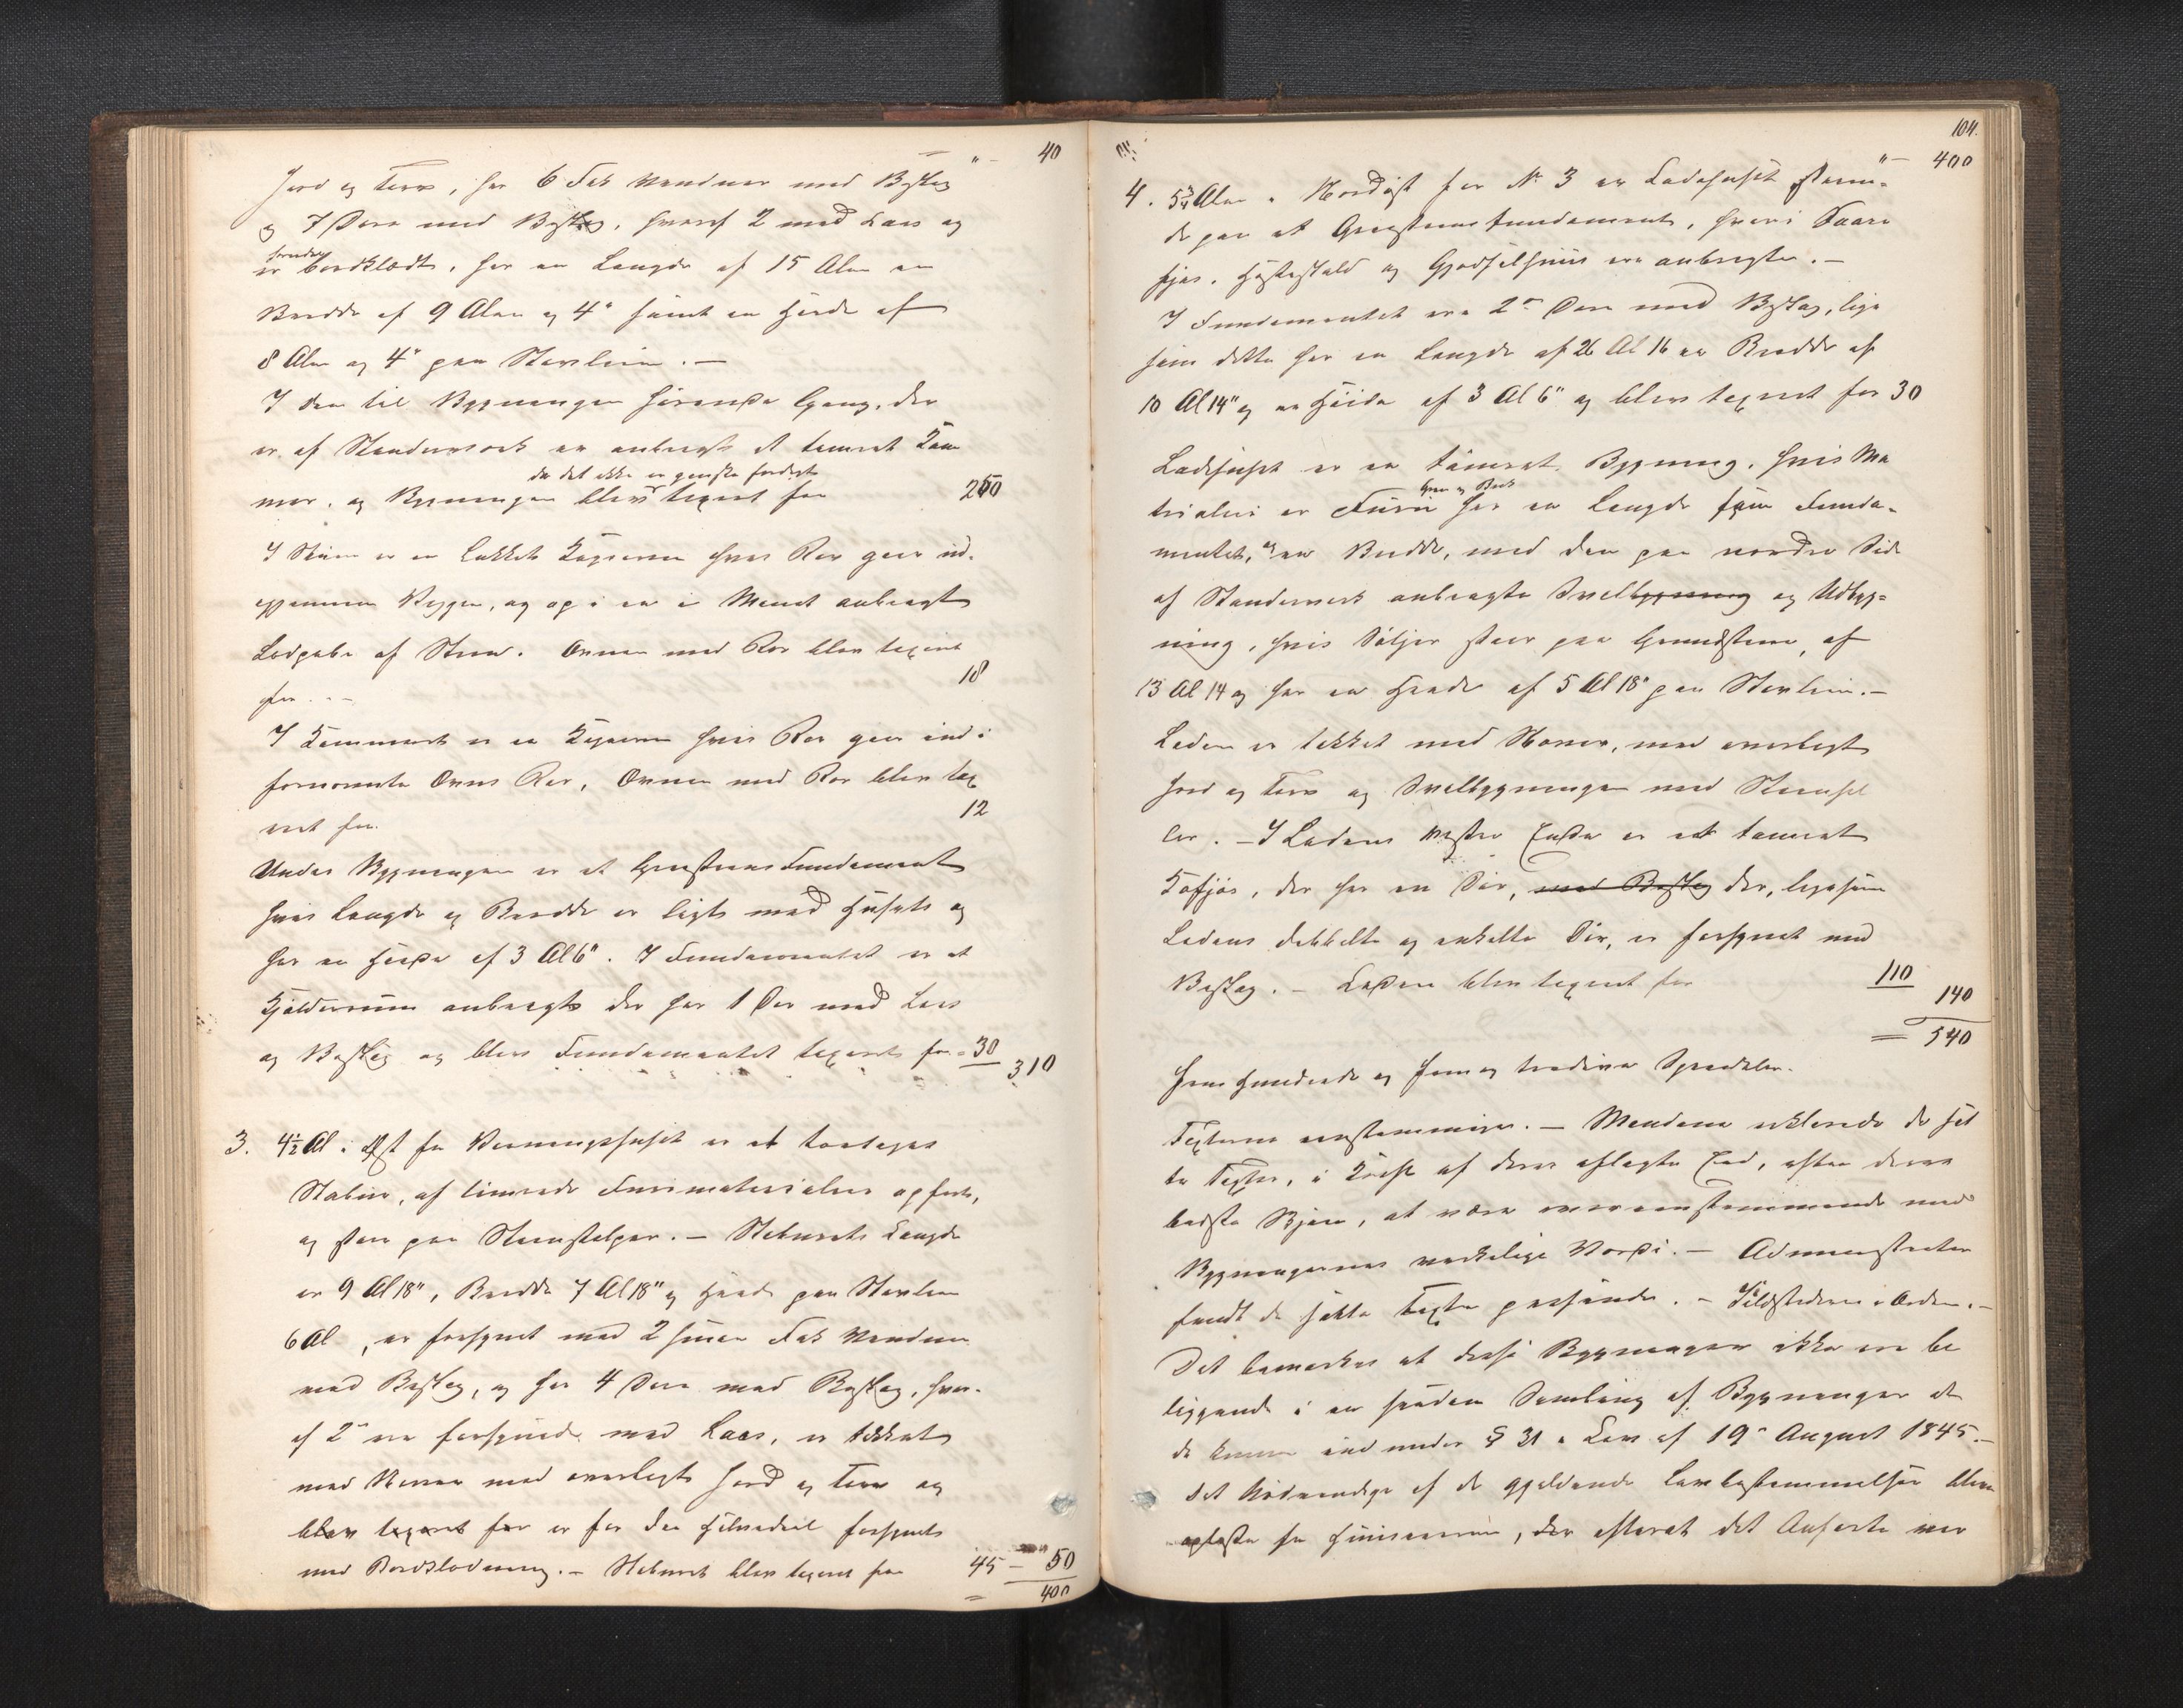 40
Jord og Torv, har 6 Fag Vinduer med Beslag
og 7 Døre med Beslag, hvoraf 2 med Laas og
er bordklædt, har en Længde af 15 Alen en
Bredde af 9 Alen og 4" samt en Høide af
8 Alen og 4" paa Stavlinie. —
I den til Bygningen hørende Gang, der
er af Standerværk er anbragt et tømret Kam
da det ikke er ganske færdigt
mer, og Bygningen blev taxeret for 250
I Stuen er en Lukket Kogeovn hvis Rør gaar ud
gjennem Væggen, og op i en i Muret anbragt
af Steen. Ovnen med Rør blev taxeret
for - - 18
I Kammeret er en Kogeovn hvis Rør gaar ind i
fornævnte Ovns Rør, Ovnen med Rør blev tax
eret for. 12
Under Bygningen er et Graasteens Fundament
hvis Længde og Bredde er ligt med Husets og
har en Høide af 3 Al 6". I Fundamentet er et
Kjelderrum anbragt der har 1 Dør med Laas
og Beslag og blev Fundamentet taxeret for - 30
310
3. 4½ Al i Øst for Vaaningshuset er et toetages
Stabur, af tømrede Furumaterialier opført,
og staar paa Steenstolper. — Staburets Længde
er 9 Al 18", Bredde 7 Al 18" og Høide paa Stavlinie
6 Al, er forsynet med 2 smaa Fag Vinduer
med Beslag, og har 4 Døre med Beslag, hvor-
af 2 ere forsynede med Laas, er tækket
med Næver med overlagt Jord og Torv og
blev taxeret for er for den Halvedeel forsynet
med Bordklædning. — Staburet blev taxeret for 45 — 50
400
104.
" — 400
4. 5¾ Alen i Nordost for No 3 er Ladehuset staaen-
de paa et Graasteens fundament, hvori Faare
fjøs, Hestestald og Gjødselhuus ere anbragte. —
I Fundamentet ere 2 Døre med Beslag, lige
som dette har en Længde af 26 Al 16 en Bredde af
10 Al 14" og en Høide af 3 Al 6" og blev taxeret for 30
Ladehuset er en tømret Bygning, hvis Ma
terialier er Furu har en Længde som Funda-
mentet, og en Bredde, med den paa nordre Side
af Standerværk anbragte Svalbygning og Udbyg=
ning, hvis Søiler staar paa Grundstene, af
13 Al 14 og har en Høide af 5 Al 18" paa Stavlinie. —
Laden er tækket med Næver, med overlagt
Jord og Torv og Svalbygningen med Steenhel
ler. — I Ladens vestre Ende er et tømret
Kofjøs, der har en Dør, med Beslag der, ligesom
Ladens dobbelte og enkelte Dør, er forsynet med
Beslag. — Laden blev taxeret for 110
140
= 540
Fem Hundrede og fem og tredive Speciedaler.
Taxterne eenstemmige. — Mændene erklærede de sat
te Taxter, i Kraft af deres aflagte Eed, efter deres
bedste Skjøn, at være overeensstemmende med
Bygningernes virkelige Værdi. — Administrator
fandt de satte Taxter passende. — Ildstederne i Orden. —
Det bemærkes at disse Bygninger ikke ere be
liggende i en saadan Samling af Bygninger at
de kunne ind under § 31 i Lov af 19 August 1845. —
Det Nødvendige af de gjældende Lovbestemmelser blev
oplæst for Huuseieren, der efterat det Anførte var